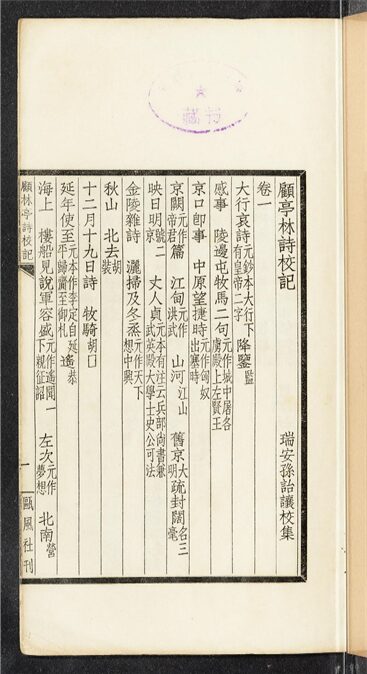 藏书
顧亭林詩校記
卷一 瑞安孫詒讓校集
大行哀詩元鈔本大行下有皇帝二字 降鑒監
感事 陵邊屯牧馬二句元作城中屠各虜殿上左賢王
京口即事 中原望捷時元作匈奴出塞時
京闕元作帝君篇 江甸元作洪武 山河江山 舊京大明 疏封闊名三毫
映日明號二京 丈人貞元本有注云兵部尚書兼武英殿大學士史公可法
金陵雜詩 灑掃及冬烝元作天下想中興
秋山 北去胡裝
十二月十九日詩 牧騎胡□
延年使至元本作李定自延平歸齎至御札 遙恭
海上 樓船見說軍容盛元作遙聞下親征詔 左次元作夢想 北南營
顧林亭詩校記 一 甌風社刊